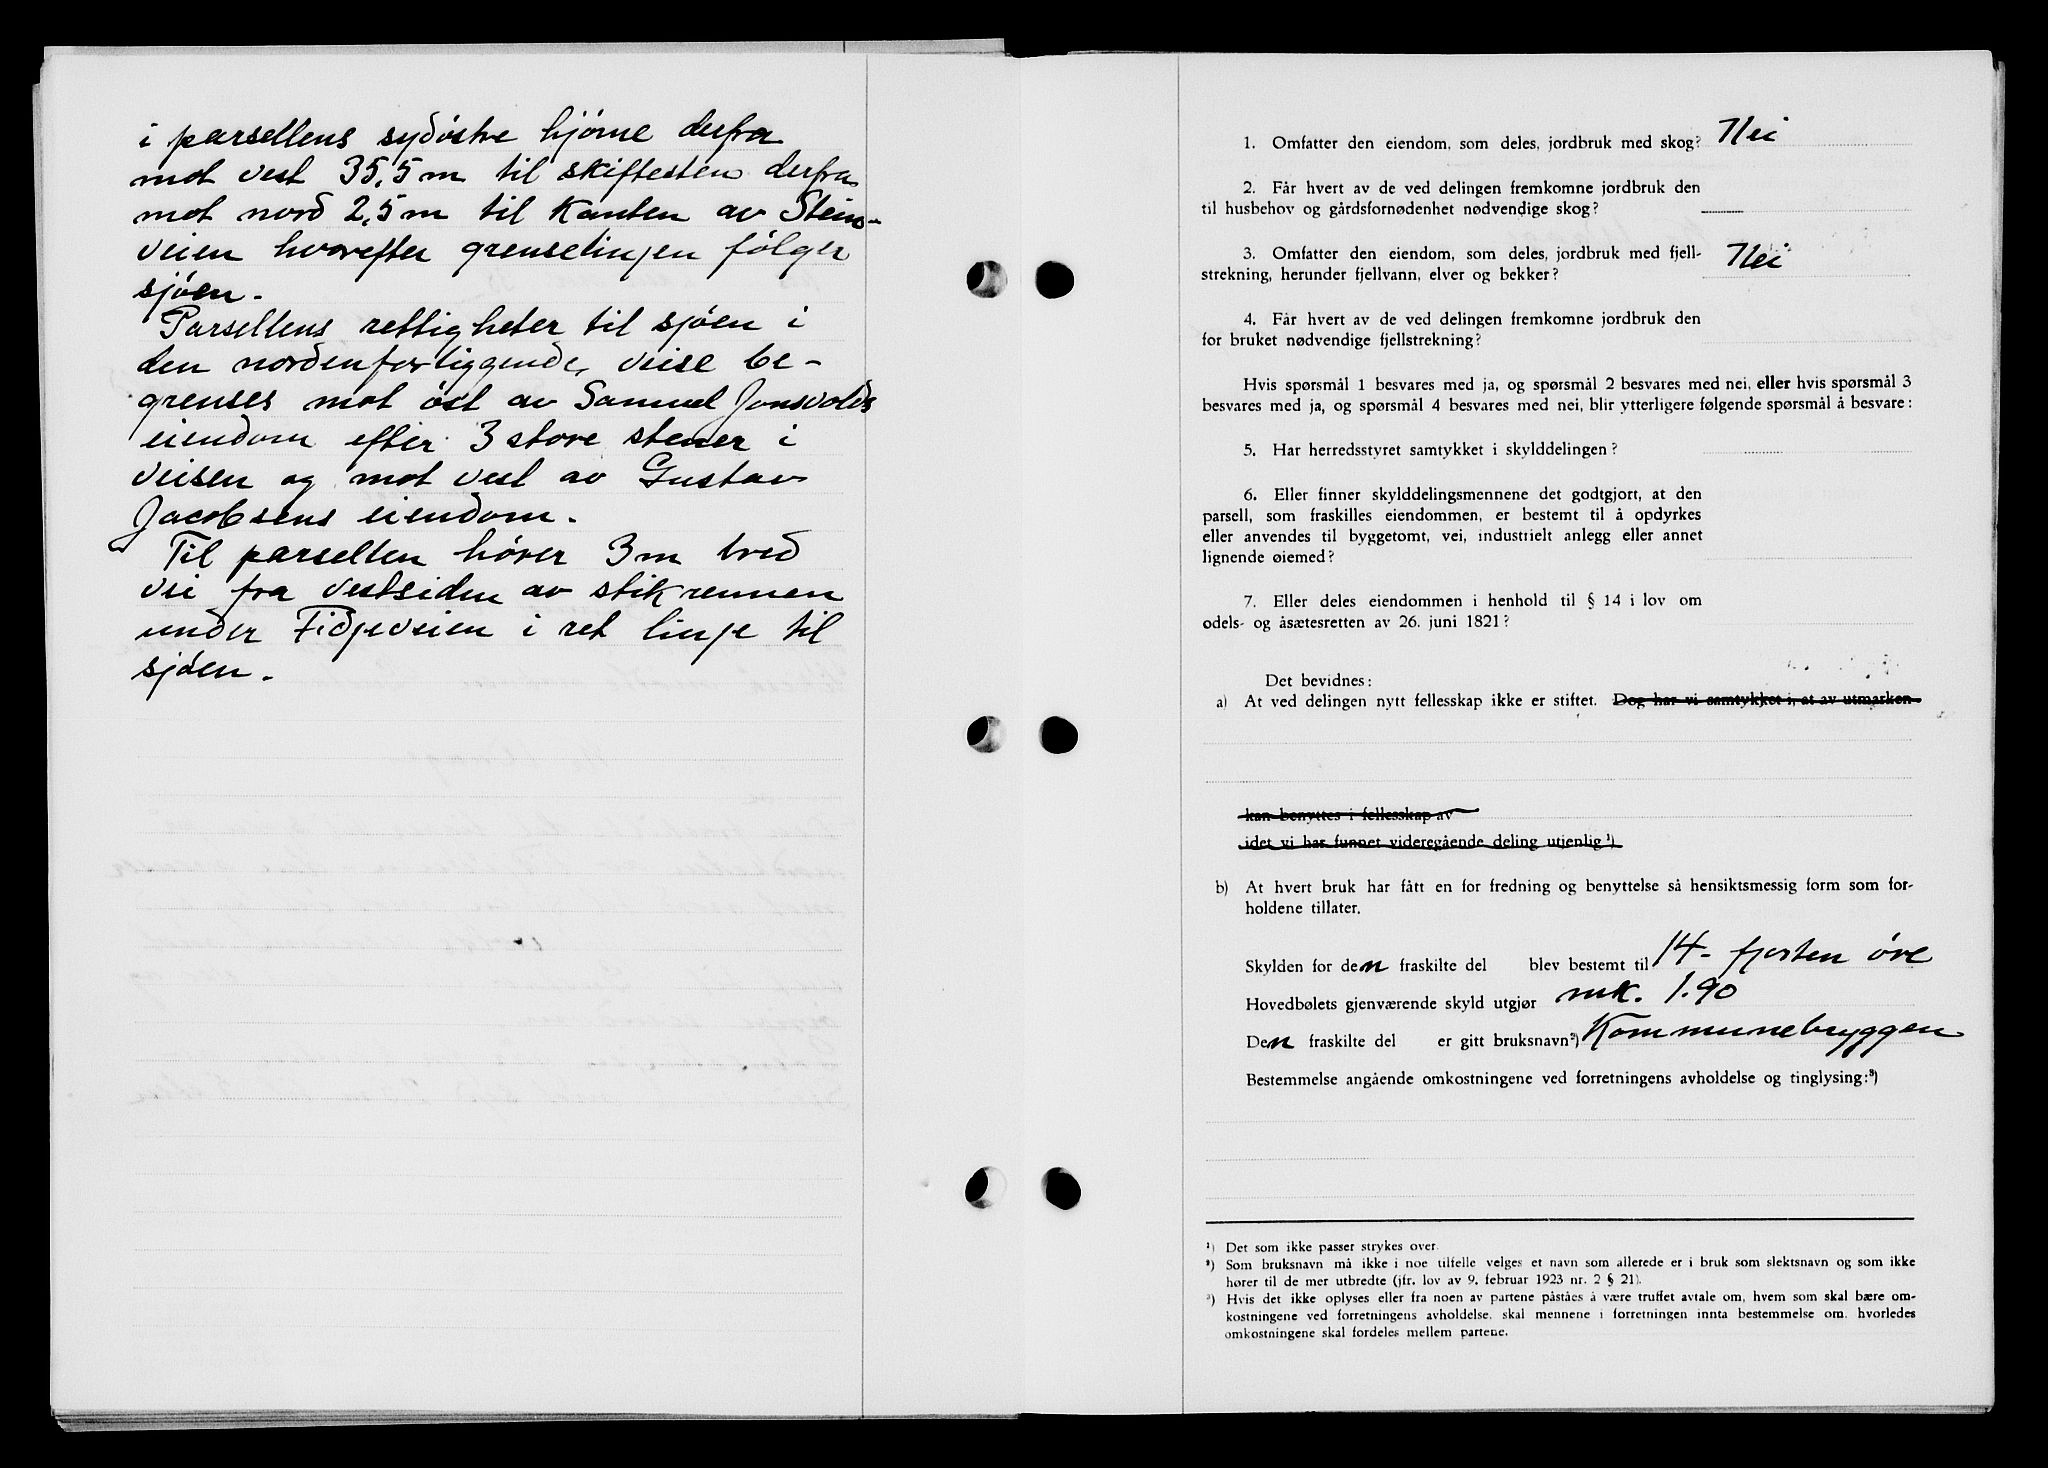 i parsellens sydöstre hjörne derfra
mot vest 35,5 m til skiftesten derfra
mot nord 2,5 m til Kanten av Stein-
veien hvorefter grenselinjen følger
sjöen.
Parsellens rettigheter til sjöen i
den nordenforliggende veise be-
grenses mot öst av Samuel Jonsvolds
eiendom efter 3 store stener i
veisen og mot vest av Gustav
Jacobsens eiendom.
Til parsellen hörer 3 m bred
vei fra vestsiden av stikrennen
under Fidjeveien i ret linje til
sjöen.
1. Omfatter den eiendom, som deles, jordbruk med skog? Nei
2. Får hvert av de ved delingen fremkomne jordbruk den
til husbehov og gårdsfornødenhet nødvendige skog?
3. Omfatter den eiendom, som deles, jordbruk med fjell-
strekning, herunder fjellvann, elver og bekker? Nei
4. Får hvert av de ved delingen fremkomne jordbruk den
for bruket nødvendige fjellstrekning?
Hvis spørsmål 1 besvares med ja, og spørsmål 2 besvares med nei, eller hvis spørsmål 3
besvares med ja, og spørsmål 4 besvares med nei, blir ytterligere følgende spørsmål å besvare:
5. Har herredsstyret samtykket i skylddelingen?
6. Eller finner skylddelingsmennene det godtgjort, at den
parsell, som fraskilles eiendommen, er bestemt til å opdyrkes
eller anvendes til byggetomt, vei, industrielt anlegg eller annet
lignende øiemed?
7. Eller deles eiendommen i henhold til § 14 i lov om
odels- og åsætesretten av 26. juni 1821?
Det bevidnes:
a) At ved delingen nytt fellesskap ikke er stiftet. Dog har vi samtykket i, at av utmarken
kan benyttes i fellesskap av
idet vi har funnet videregående deling utjenlig ¹)
b) At hvert bruk har fått en for fredning og benyttelse så hensiktsmessig form som for-
holdene tillater.
Skylden for den fraskilte del blev bestemt til 14 - fjorten öre
Hovedbølets gjenværende skyld utgjør mk. 1.90
Den fraskilte del er gitt bruksnavn ²) Kommunebryggen
Bestemmelse angående omkostningene ved forretningens avholdelse og tinglysing: ³)
¹) Det som ikke passer strykes over.
²) Som bruksnavn må ikke i noe tilfelle velges et navn som allerede er i bruk som slektsnavn og som ikke
hører til de mer utbredte (jfr. lov av 9. februar 1923 nr. 2 § 21).
³) Hvis det ikke oplyses eller fra noen av partene påståes å være truffet avtale om, hvem som skal bære om-
kostningene ved forretningens avholdelse, skal mennene i forretningen innta bestemmelse om, hvorledes
omkostningene skal fordeles mellem partene.